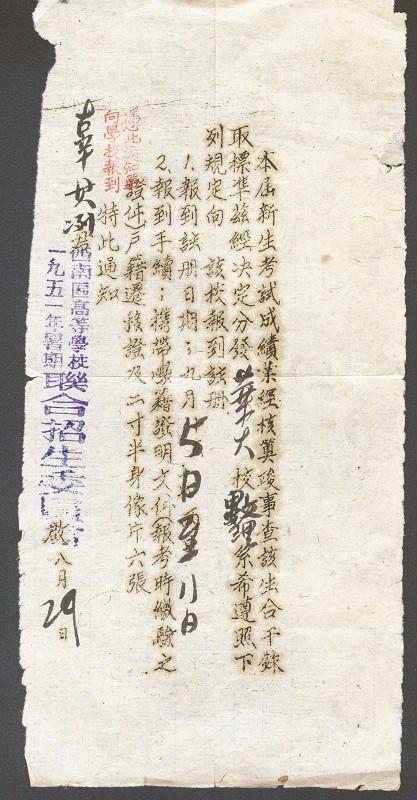 本届新生考試成績業經核算竣事查該生合乎錄
取標準茲經决定分發華大校數理系希遵照下
列規定向該校報到註册
1.報到註册日期：九月5日至11日
2.報到手續：携帶學籍證明文件(報考時繳驗之
證件)戶籍遷移證及二寸半身像片六張
特此通知
憑此通知單
向學校報到
君
西南區高等學校
一九五一年暑期
聯合招生委員會
啟八月29日